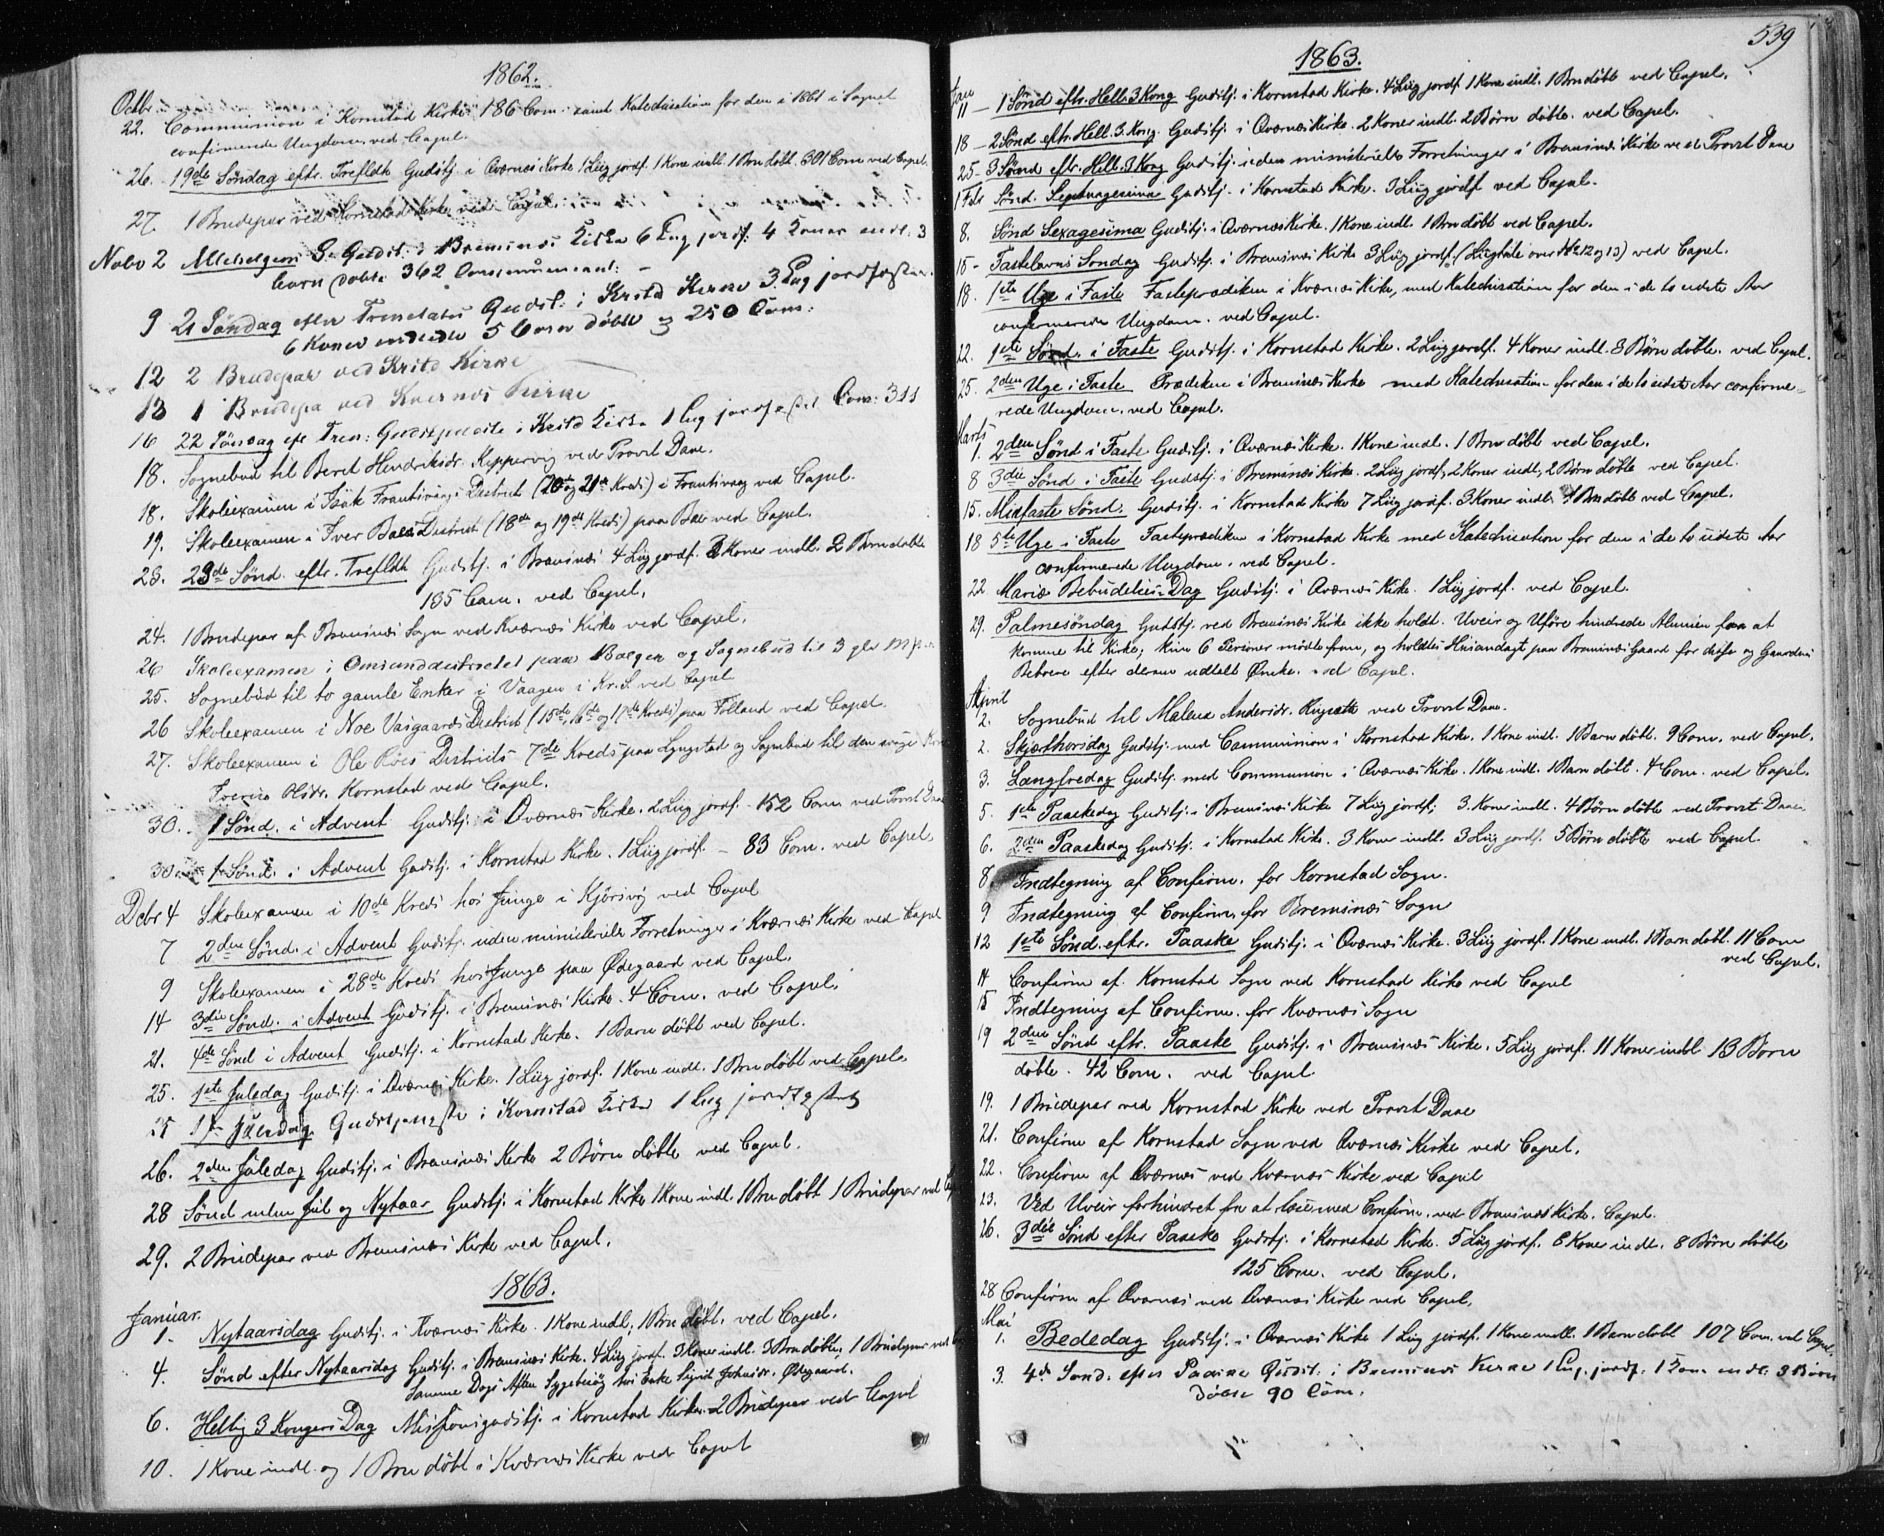 1862.
Octbr.
22. Communion i Kornstad Kirke 186 Com. samt Katechisation for den i 1861 i Sognet
confirmerede Ungdom, ved Capel.
26. 19de Söndag eftr. Trefldh Gudstj. i Qværnes Kirke 1 Liig jordf. 1 Kone indl. 1 Brn döbt. 301 Com ved Capel.
27. 1 Brudepar ved Kornstad Kirke ved Capel.
Nobr 2 G. Gudst. i Bremsnæs Kirke 6 Lig jordf. 4 Koner indl. 3
börn döbte 362 Communicant:
9 21 Söndag efter Trinitatis Gudst. i Krstd Kirke 3 Lig jordfæstede
6 Koner indledte 5 börn döbte 250 Com:
12 2 Brudepar ved Krstd Kirke
13 1 Brudepa ved Kvernes Kirke
16 22 Sönsag eft Tren: Gudstjeneste i Krstd Kirke 1 Lig jordfæstet Com: 311
18. Sognebud til Beret Hendriksdr. Kippervig ved Provst Dane.
18. Skoleexamen i Isak Frantsvaag District (20de og 21de Kreds) i Frantsvaag ved Capel.
19. Skoleexamen i Iver Baes District (18de og 19de Kreds) paa Bae ved Capel.
23. 23de Sönd. eftr. Trefldh Gudstj. i Bremsnæs 4 Liig jordf. 3 Koner indl. 2 Brn döbte
185 Com. ved Capel.
24. 1 Brudepar af Bremsnæs Sogn ved Kværnæs Kirke ved Capel.
26 Skoleexamen i Omsunddistrictet paa Bolgen og Sognebud til 3 gle
25. Sognebud til to gamle Enker i Vaagen i Kr.S. ved Capel
26 Skoleexamen i Noe Vasgaards District (15de, 16de og 17de Kreds) paa Folland ved Capel.
27. Skoleexamen i Ole Röes Districts 7de Kreds paa Lyngstad og Sognebud til den svage
Olsdr. Kornstad ved Capel.
30. 1 Sönd. i Advent Gudstj. i Qværnæs Kirke. 2 Liig jordf. 152 Com ved Provst Dane
30. 1 Sönd. i Advent Gudstj. i Kornstad Kirke. 1 Liig jordf. – 83 Com. ved Capel.
Dcbr 4 Skoleexamen i 10de Kreds hos Junge i Kjörsvig ved Capel
7 2den Sönd. i Advent Gudstj. uden ministerielle Forretninger i Kværnæs Kirke ved Capel
9 Skoleexamen i 28de Kreds hos Junge paa Ödegaard ved Capel.
14 3die Sönd. i Advent Gudstj. i Bremsnæs Kirke. 4 Com. ved Capel.
21. 4de Sönd i Advent Gudstj. i Kornstad Kirke. 1 Barn döbt ved Capel.
25. 1ste Juledag Gudstj. i Qværnæs Kirke. 1 Liig jordf. 1 Kone indl. 1 Brn döbt ved Capel.
25 1ste Juledag Gudstjeneste i Kornstad Kirke 1 Lig jordfæstet
26. 2den Juledag Gudstj. i Bremsnæs Kirke 2 Börn döbte ved Capel.
28 Sönd mlm Jul og Nytaar Gudstj. i Kornstad Kirke 1 Kone indl. 1 Brn döbt 1 Brudepar ved Capel
29. 2 Brudepar ved Bremsnæs Kirke ved Capel.
1863.
Januar.
1. Nytaarsdag Gudstj. i Kværnæs Kirke. 1 Kone indl. 1 Brn döbt. ved Capel.
4. Sönd efter Nytaarsdag Gudstj. i Bremsnæs Kirke. 4 Liig jordf. 3 Koner indl. 3 Brn döbte, 1 Brudepar ved
Samme Dags Aften Sygebesög hos Enke Sigrid Johnsdr. Ödegaard.
6. Hellig 3 Kongers Dag Missionsgudstj. i Kornstad Kirke. 2 Brudepar ved Capel
10. 1 Kone indl. og 1 Brn döbt i Kværnæs Kirke ved Capel
539
1863.
Jan
11 – 1 Sönd eftr. Hell. 3 Kong Gudstj. i Kornstad Kirke. 4 Liig jordf. 1 Kone indl. 1 Brn döbt ved Capel.
18 – 2 Sönd eftr. Hell. 3. Kong. Gudstj. i Qværnæs Kirke. 2 Koner indl. 2 Börn döbte. ved Capel.
25 – 3 Sönd eftr. Hell. 3 Kong Gudstj. uden ministerielle Forretninger i Bremsnæs Kirke ved Provst Dane
1 Febr Sönd. Septuagesima Gudstj. i Kornstad Kirke. 3 Liig jordf. ved Capel.
8. Sönd Sexagesima Gudstj. i Qværnæs Kirke. 1 Kone indl. 1 Brn döbt ved Capel.
15 – Fastelavns Sondag Gudstj. i Bremsnæs Kirke 3 Liig jordf. (Liigtale over 12 og 13) ved Capel.
18. 1ste Uge i Faste Fasteprædiken i Kværnæs Kirke, med Katechisation for den i de to sidste Aar
confirmerede Ungdom. ved Capel.
22. 1ste Sönd. i Faste Gudstj. i Kornstad Kirke. 2 Liig jordf. 4 Koner indl. 3 Börn döbte. ved Capel.
25. 2den Uge i Faste Prædiken i Bremsnæs Kirke med Katechisation for den i de to sidste Aar confirme-
rede Ungdom. ved Capel.
Marts
1. 2den Sönd i Faste Gudstj. i Qværnæs Kirke. 1 Kone indl. 1 Brn döbt ved Capel.
8 3die Sönd i Faste Gudstj. i Bremsnæs Kirke. 2 Liig jordf. 2 Koner indl, 2 Börn döbte ved Capel.
15. Midfaste Sönd. Gudstj. i Kornstad Kirke 7 Liig jordf. 3 Koner indl. 1 Brn döbte ved Capel.
18 5te Uge i Faste Fasteprædiken i Kornstad Kirke med Katechisation for den i de to sidste Aar
confirmerede Ungdom. ved Capel.
22 Mariæ Bebudelses-Dag Gudstj. i Qværnæs Kirke. 1 Liig jordf. ved Capel.
29. Palmesöndag Gudstj. ved Bremsnæs Kirke ikke holdt. Uveir og Uföre hindrede Almuen fra at
komme til Kirke; kun 6 Personer mödte frem, og holdtes Husandagt paa Bremsnæs Gaard for disse og Gaardens
Beboere efter deres udtalt Önske. ved Capel.
April
2. Sognebud til Malene Andersdr. ved Provst Dane.
2. Skjærthorsdag Gudstj. med Communion i Kornstad Kirke. 1 Kone indl. 1 Barn döbt. 9 Com. ved Capel.
3. Langfredag Gudstj. med Communion i Qværnæs Kirke. 1 Kone indl. 1 Barn döbt. 4 Com. ved Capel.
5. 1ste Paaskedag Gudstj. i Bremsnæs Kirke 7 Liig jordf; 3. Koner indl. 4 Börn döbte ved Provst Dane
6. 2den Paaskedag Gudstj. i Kornstad Kirke. 3 Koner indl. 3 Liig jordf. 5 Börn döbte ved Capel.
8. Indtegning af Confirm. for Kornstad Sogn.
9 Indtegning af Confirm. for Bremsnæs Sogn
12 1ste Sönd. eftr. Paaske Gudstj. i Qværnæs Kirke. 3 Liig jordf. 1 Kone indl. 1 Barn döbt. 11 Com
ved Capel.
14 Confirm af Kornstad Sogn ved Kornstad Kirke ved Capel
15 Indtegning af Confirm. for Kværnæs Sogn
19 2den Sönd eftr. Paaske Gudstj. i Bremsnæs Kirke. 5 Liig jordf. 11 Koner indl. 13 Börn
döbte. 42 Com. ved Capel
19. 1 Brudepar ved Kornstad Kirke ved Provst Dane
21. Confirm af Kornstad Sogn ved Qværnæs Kirke ved Capel.
22. Confirm af Qværnæs ved Kværnæs Kirke ved Capel
23. Ved Uveir forhindret fra at læse med Confirm. ved Bremsnæs Kirke. Capel.
26. 3die Sönd efter Paaske Gudstj. i Kornstad Kirke. 5 Liig jordf. 8 Koner indl. 8 Börn döbte
125 Com. ved Capel.
28 Confirm af Qværnæs ved Qværnæs Kirke ved Capel.
Mai
1. Bededag Gudstj. i Qværnæs Kirke 1 Liig jordf. 1 Kone indl. 1 Barn döbt 107 Com. ved Capel.
3. 4de Sönd. efter Paaske Gudst. i Bremsnæs Kirke 1 Lig. jordf. 1 Kon. indl. 3 Börn
Döbte 90 Com.